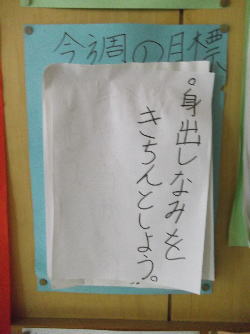 今週の目標
。身出しなみを
きちんとしよう。